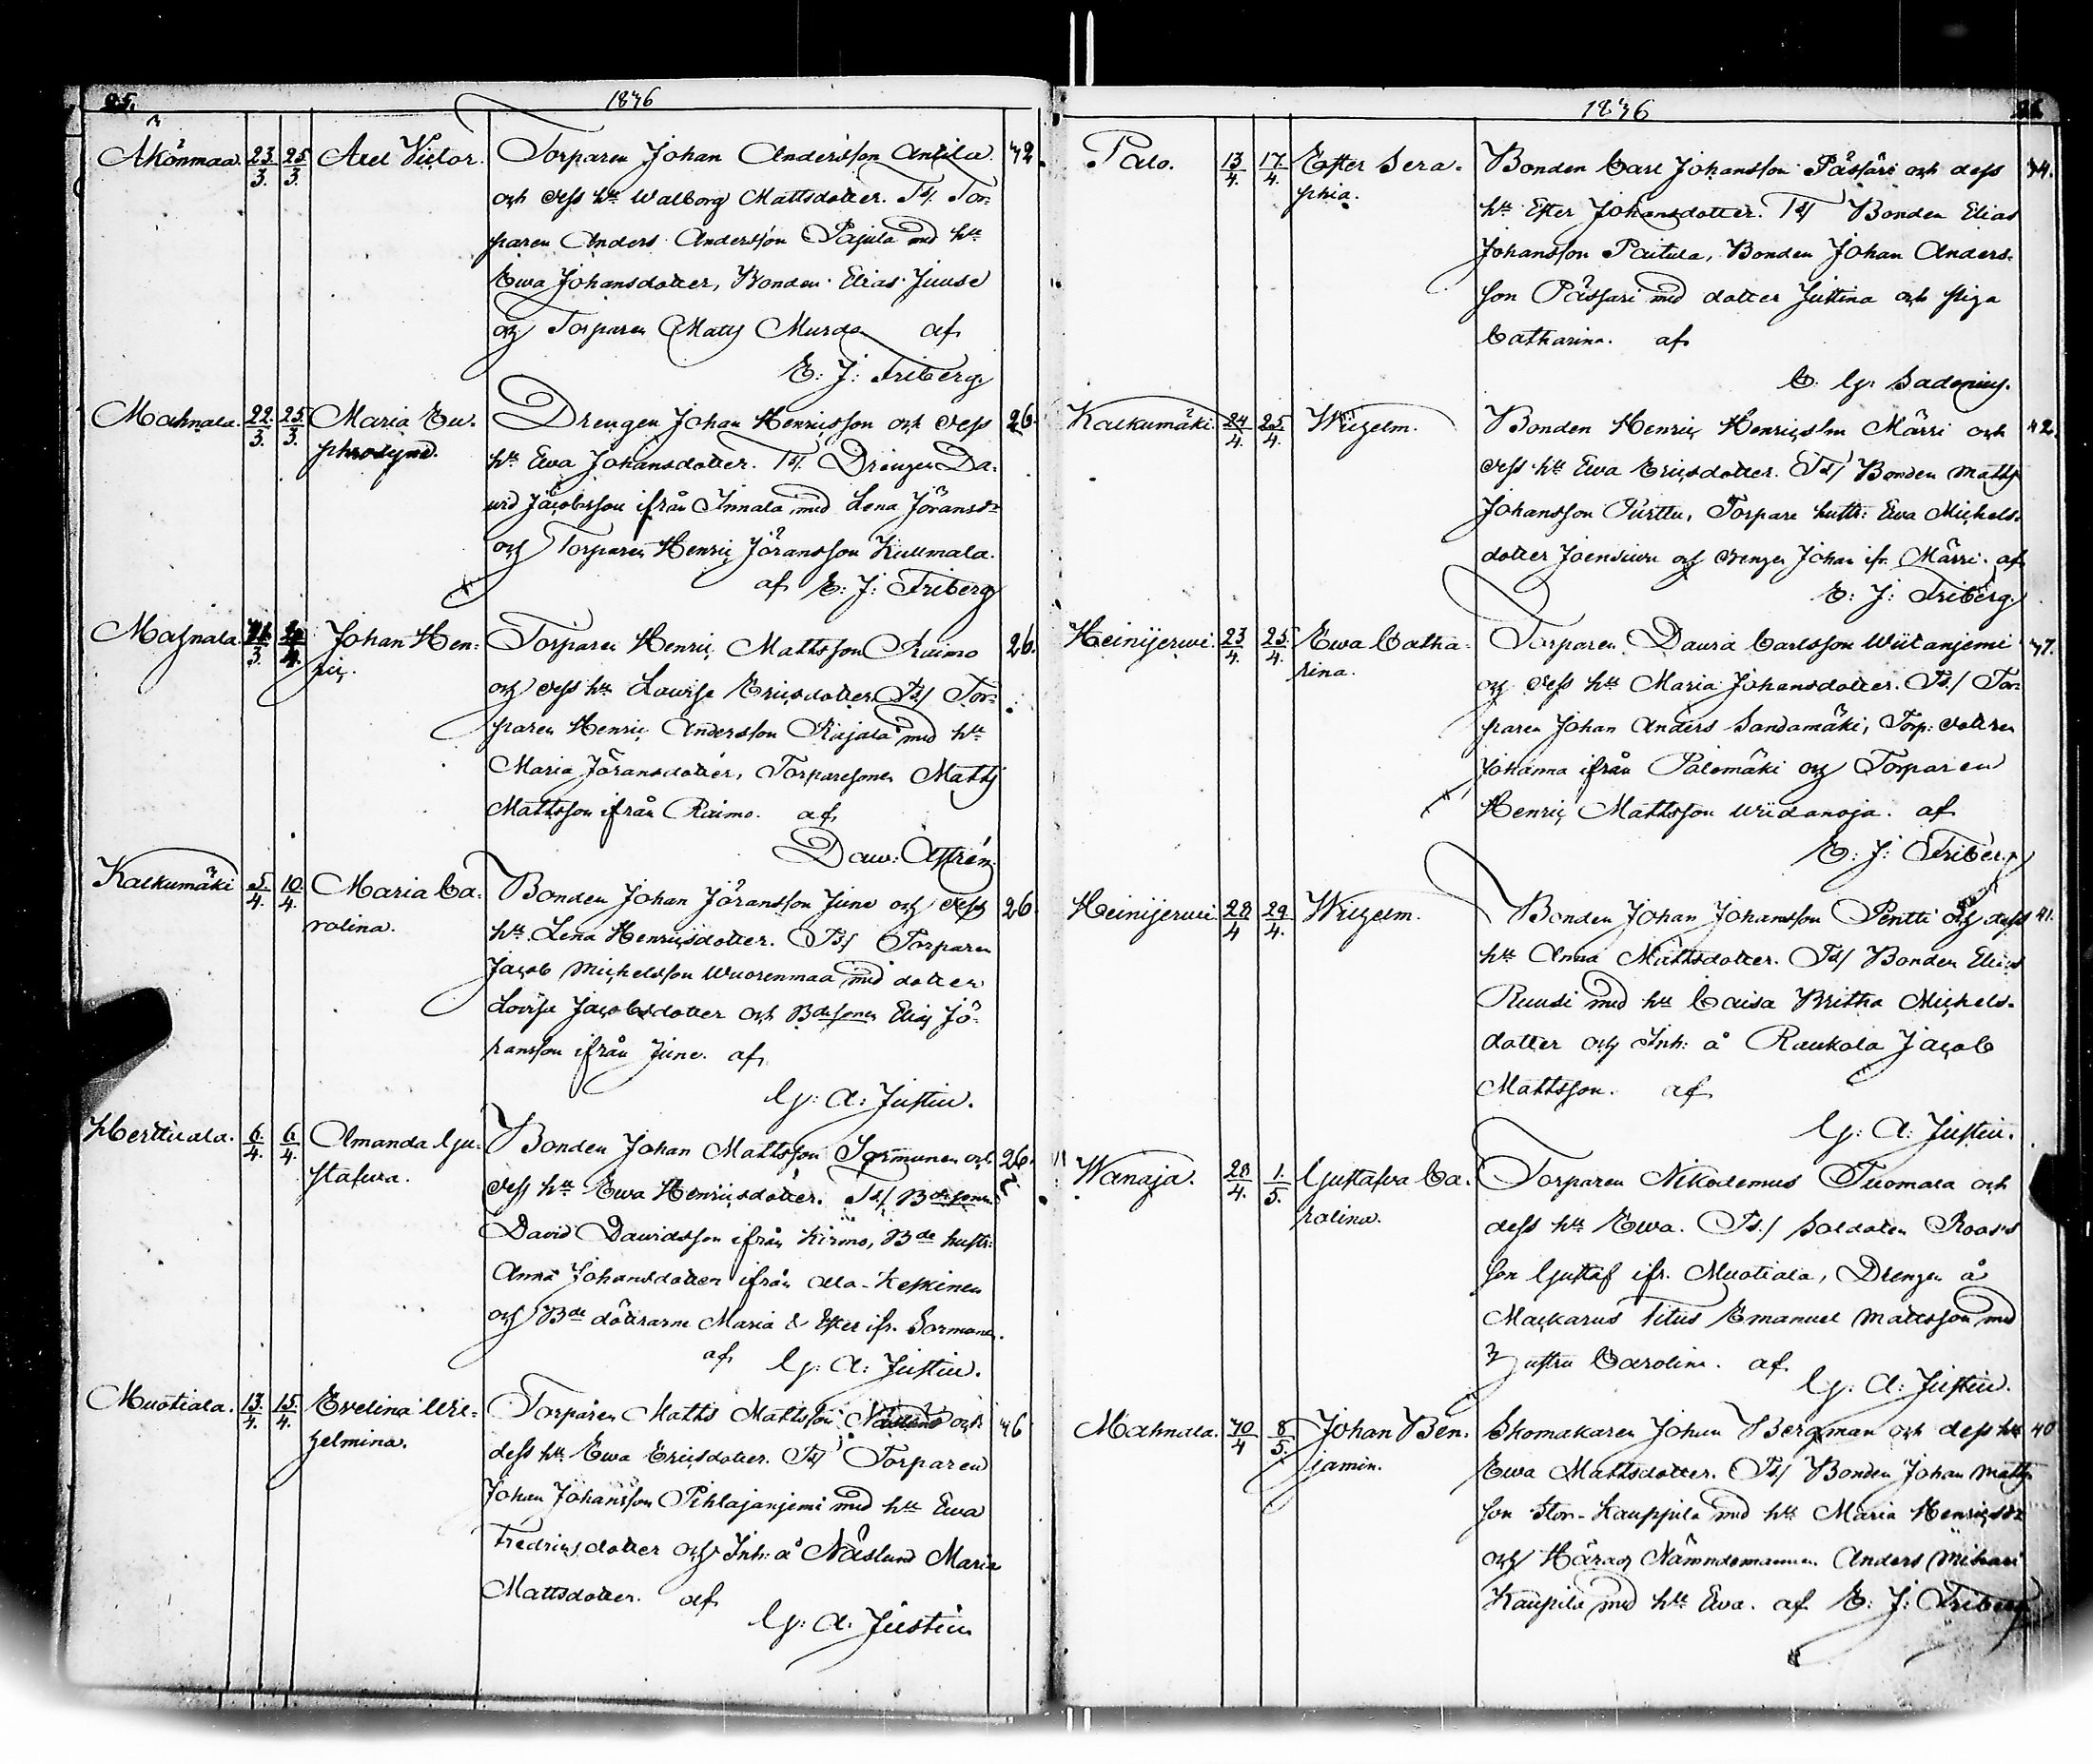 25.
1836
Åkönmaa. 23/3. 25/3. Axel Victor. Torparen Johan Andersson Anttila 42.
och dess hu Walborg Mattsdotter. Td. Tor-
paren Anders Andersson Pajula med hu
Ewa Johansdotter, Bonden Elias Juuse
och Torparen Matts Murdo af
E: J: Friberg
Mahnala. 22/3. 25/3. Maria Eu- Drengen Johan Henricsson och dess 26.
phrosyne. hu Ewa Johansdotter. Td. Drengen Da-
vid Jacobsson ifrån Innala med Lena Jöransdr
och Torparen Henric Jöransson Kullmala.
af E: J: Friberg
Mahnala. /3. /4. Johan Hen- Torparen Henric Mattsson Raimo 26.
ric. och dess hu Lovisa Ericsdotter Td/ Tor-
paren Henric Andersson Rajala med hu
Maria Jöransdotter, Torparesonen Matts
Mattsson ifrån Raimo. af
Daw: Astrén
Kalkumäki 5/4. 10/4. Maria Ca- Bonden Johan Jöransson June och dess 26.
rolina. hu Lena Henricsdotter. Td/ Torparen
Jacob Michelsson Wuorenmaa med dotter
Lovisa Jacobsdotter och Bdesonen Elias Jö-
ransson ifrån June. af
G: A: Justin.
Herttuala. 6/4. 6/4. Amanda Gu- Bonden Johan Mattsson Sormunen och 26.
stafwa. dess hu Ewa Henricsdotter. Td/ Bdesonen
David Davidsson ifrån Kirmo, Bde hustr:
Anna Johansdotter ifrån Ala-Keskinen
och Bde döttrarne Maria & Ester ifr. Sormunen.
af G: A: Justin.
Muotiala. 13/4. 15/4. Evelina Wil- Torparen Matts Mattsson Näslund och 46
helmina. dess hu Ewa Ericsdotter. Td/ Torparen
Johan Johansson Pihlajaniemi med hu Ewa
Fredricsdotter och Inh: å Näslund Maria
Mattsdotter. af
G: A: Justin
1836
26.
Palo. 13/4. 17/4. Ester Sera- Bonden Carl Johansson Pässäri och dess 44.
phia. hu Ester Johansdotter. Td/ Bonden Elias
Johansson Paitula, Bonden Johan Anders-
son Pässäri med dotter Justina och piga
Catharina. af
C. G. Sadenius.
Kalkumäki. 24/4. 25/4. Wilhelm. Bonden Henric Henricsson Märri och 42.
dess hu Ewa Ericsdotter. Td/ Bonden Matts
Johansson Purttu, Torpare hustr: Ewa Michels-
dotter Joensuu och drengen Johan ifr. Märri. af
E: J: Friberg.
Heinijerwi. 23/4. 25/4. Ewa Catha- Torparen David Carlsson Wiitaniemi 47.
rina. och dess hu Maria Johansdotter. Td./ Tor-
paren Johan Anders Sandamäki, Torp: dottren
Johanna ifrån Palomäki och Torparen
Henric Mattsson Wiidanoja. af
E: J: Friberg
Heinijerwi. 28/4 29/4. Wilhelm. Bonden Johan Johansson Pentti och dess 41.
hu Anna Mattsdotter. Td/ Bonden Elias
Ruusi med hu Caisa Britha Michels-
dotter och Inh: å Raukola Jacob
Mattsson. af
G: A: Justin.
Wanaja. 28/4. 1/5. Gustafva Ca- Torparen Nikodemus Tuomala och
rolina. dess hu Ewa. Td./ Soldaten Roos's
son Gustaf ifr. Muotiala, Drengen å
Mackarus Titus Emanuel Mattsson med
hustru Carolina. af
G: A: Justin.
Mahnala. 30/4 8/5. Johan Ben- Skomakaren Johan Bergman och dess hu 40
jamin. Ewa Mattsdotter. Td./ Bonden Johan Matts
son Stor-Kauppila med hu Maria Henricsdr
och Härads Nämndemannen Anders Mihari
Kaupila med hu Ewa. af E: J: Friberg